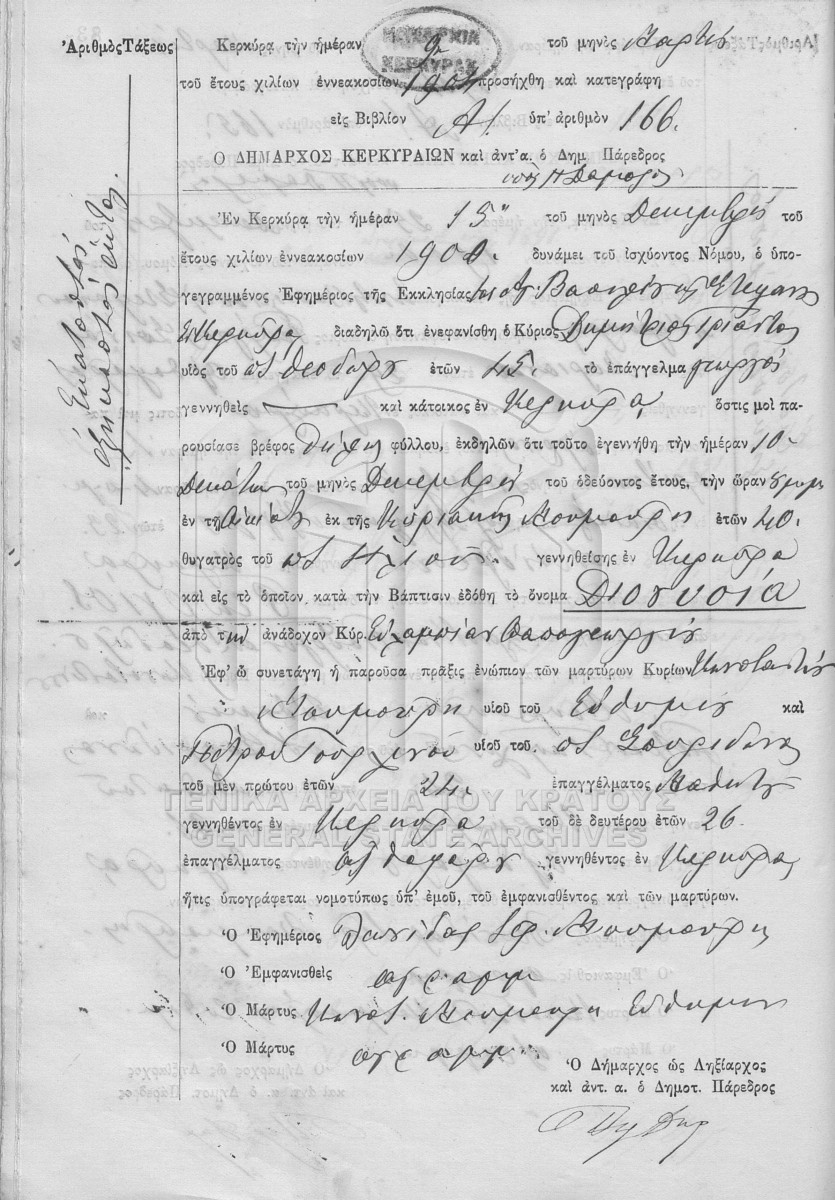 Ἀριθμὸς Τάξεως
Ἑκατοστὸς
ἑξηκοστὸς ἕκτος.
ΔΗΜΑΡΧΙΑ
ΚΕΡΚΥΡΑΣ
Κερκύρα τὴν ἡμέραν 9 τοῦ μηνὸς Μαρτίου
τοῦ ἔτους χιλίων ἐννεακοσίων προσήχθη καὶ κατεγράφη
εἰς Βιβλίον Α1. ὑπ' ἀριθμὸν 166.
Ο ΔΗΜΑΡΧΟΣ ΚΕΡΚΥΡΑΙΩΝ καὶ ἀντ'α. ὁ Δημ. Πάρεδρος
Ἐν Κερκύρᾳ τὴν ἡμέραν 15 τοῦ μηνὸς Δεκεμβρίου τοῦ
ἔτους χιλίων ἐννεακοσίων 1900. δυνάμει τοῦ ἰσχύοντος Νόμου, ὁ ὑπο-
γεγραμμένος Ἐφημέριος τῆς Ἐκκλησίας τοῦ Ἁγ. Βασιλείου
ἐν Κερκύρᾳ διαδηλῶ ὅτι ἐνεφανίσθη ὁ Κύριος Δημήτριος Τριάντος
υἱὸς τοῦ ποτ Θεοδώρου ἐτῶν 45. τὸ ἐπάγγελμα γεωργός
γεννηθεὶς — καὶ κάτοικος ἐν Κερκύρᾳ, ὅστις μοὶ πα-
ρουσίασε βρέφος θήλεος φύλλου, ἐκδηλῶν ὅτι τοῦτο ἐγεννήθη τὴν ἡμέραν 10-
Δεκάτην τοῦ μηνὸς Δεκεμβρίου τοῦ ὁδεύοντος ἔτους, τὴν ὥραν 8 μμ
ἐν τῇ οἰκίᾳ ἐκ τῆς Κυριακῆς Μουμούρη ἐτῶν 40.
θυγατρὸς τοῦ ποτ Ἠλιοῦ. γεννηθείσης ἐν Κερκύρᾳ
καὶ εἰς τὸ ὁποῖον κατὰ τὴν Βάπτισιν ἐδόθη τὸ ὄνομα Διονυσία
ἀπὸ τὴν ἀνάδοχον Κύρ. Εὐλαμπίαν Παπαγεωργίου
Ἐφ' ᾧ συνετάγη ἡ παροῦσα πρᾶξις ἐνώπιον τῶν μαρτύρων Κυρίων Κωνσταντίνου
Μουμούρη υἱοῦ τοῦ Εὐθυμίου καὶ
Πέτρου υἱοῦ τοῦ. ποτ Σπυρίδωνος
τοῦ μὲν πρώτου ἐτῶν 24. ἐπαγγέλματος
γεννηθέντος ἐν Κερκύρᾳ τοῦ δὲ δευτέρου ἐτῶν 26
ἐπαγγέλματος γεννηθέντος ἐν Κερκύρᾳ
ἥτις ὑπογράφεται νομοτύπως ὑπ' ἐμοῦ, τοῦ ἐμφανισθέντος καὶ τῶν μαρτύρων.
Ὁ Ἐφημέριος Λεωνίδας Μουμούρης
Ὁ Ἐμφανισθεὶς αγραμμ
Ὁ Μάρτυς Κωνστ. Μουμούρη Εὐθυμίου
Ὁ Μάρτυς αγραμμ.
Ὁ Δήμαρχος ὡς Ληξίαρχος
καὶ ἀντ. α. ὁ Δημοτ. Πάρεδρος
ΓΕΝΙΚΑ ΑΡΧΕΙΑ ΤΟΥ ΚΡΑΤΟΥΣ
GENERAL STATE ARCHIVES